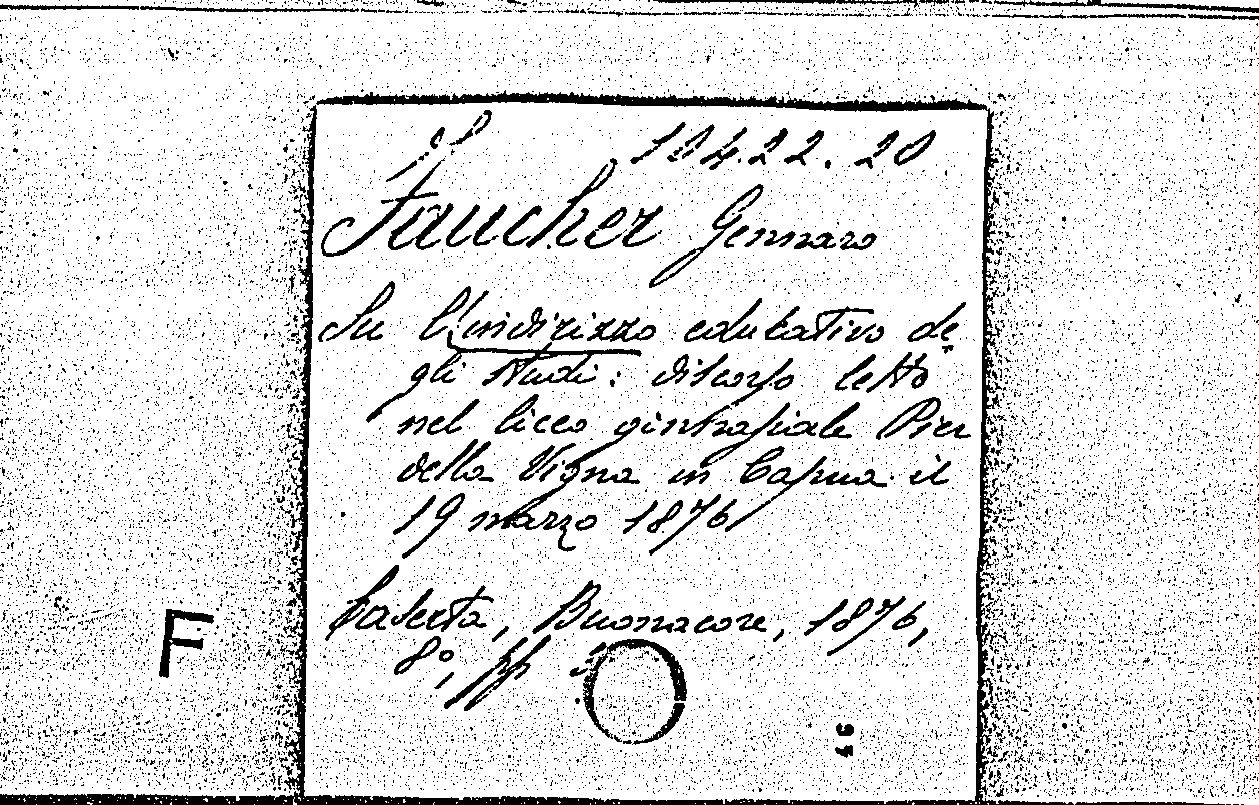 F
Faucher Gennaro
Su l'indirizzo educativo de-
gli studi: discorso letto
nel liceo ginnasiale Pier
della Vigna in Capua il
19 marzo 1876
Caserta, Buonacore, 1876,
8°, pp
F